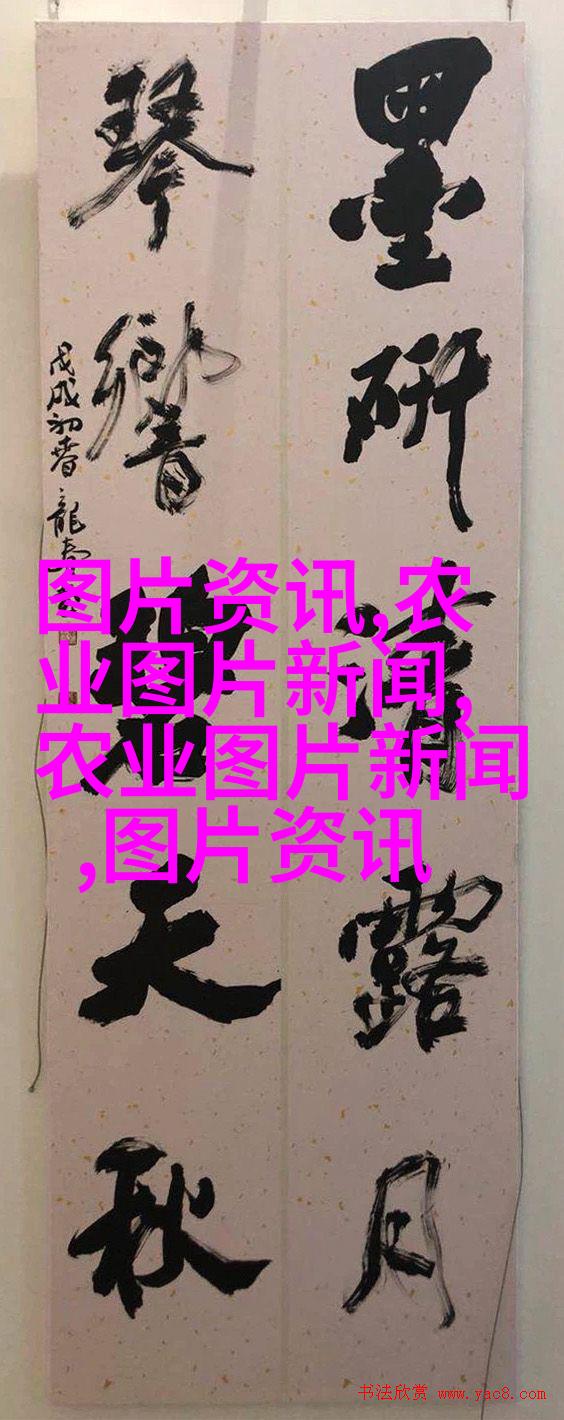 墨研清露月
琴響碧天秋
戊戌初春龍
图片资讯,农
业图片新闻,
农业图片新闻
,图片资讯
书法欣赏 www.yac8.com